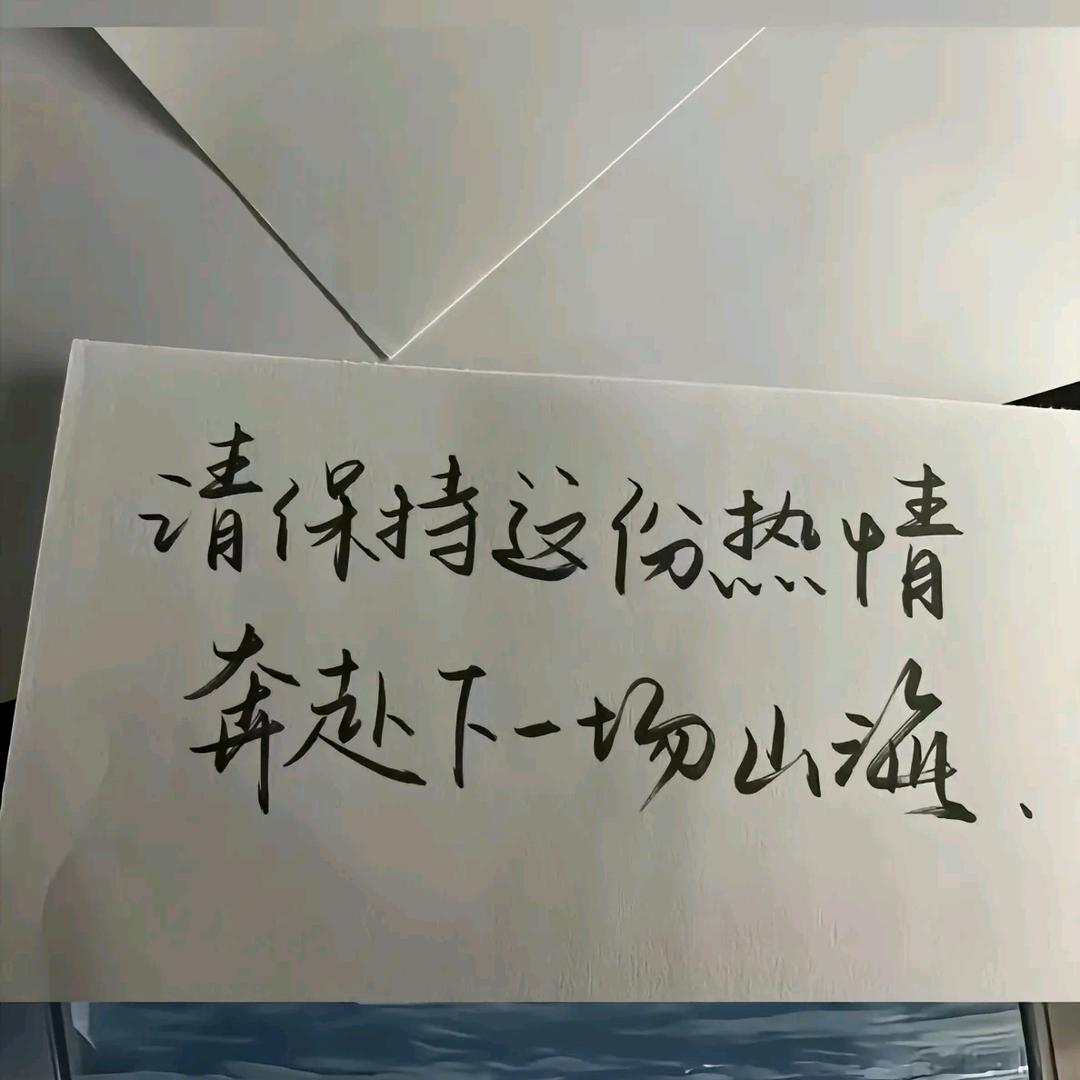 请保持这份热情
奔赴下一场山海、